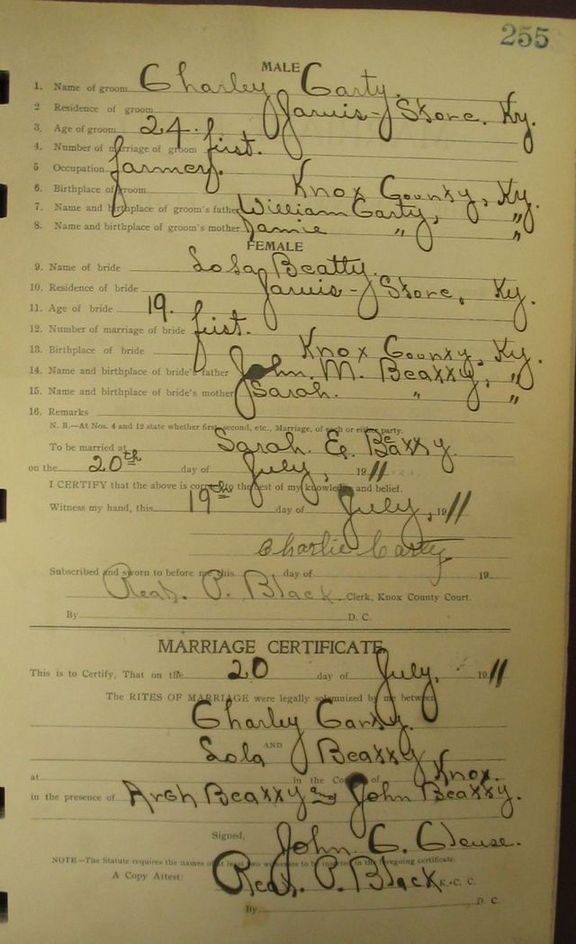 255
MALE
1. Name of groom Charley Carty.
2 Residence of groom Jarvis-Store. Ky.
3. Age of groom 24.
4. Number of marriage of groom first.
5 Occupation farmer.
6. Birthplace of groom Knox County, Ky.
7. Name and birthplace of groom's father William Carty, "
8. Name and birthplace of groom's mother Jamie " "
FEMALE
9. Name of bride Lola Beatty.
10. Residence of bride Jarvis-Store, Ky.
11. Age of bride 19.
12. Number of marriage of bride first.
13. Birthplace of bride Knox County, Ky.
14. Name and birthplace of bride's father John. M. Beatty, "
15. Name and birthplace of bride's mother Sarah. " "
16. Remarks
N. B.—At Nos. 4 and 12 state whether first, second, etc., Marriage, of each or either party.
To be married at Sarah. E. Beatty.
on the 20th day of July, 1911
I CERTIFY that the above is correct to the best of my knowledge and belief.
Witness my hand, this 19th day of July, 1911
Charlie Carty
Subscribed and sworn to before me this day of 19
Read. P. Black. Clerk, Knox County Court.
By D. C.
MARRIAGE CERTIFICATE
This is to Certify, That on the 20 day of July, 1911
The RITES OF MARRIAGE were legally solemnized by me between
Charley Carty.
AND
Lola Beatty
at in the County of Knox.
in the presence of Arch Beatty & John Beatty.
Signed, John C.
NOTE—The Statute requires the names of at least two witnesses to be in the foregoing certificate.
A Copy Attest: Read. P. Black K. C. C.
By D. C.